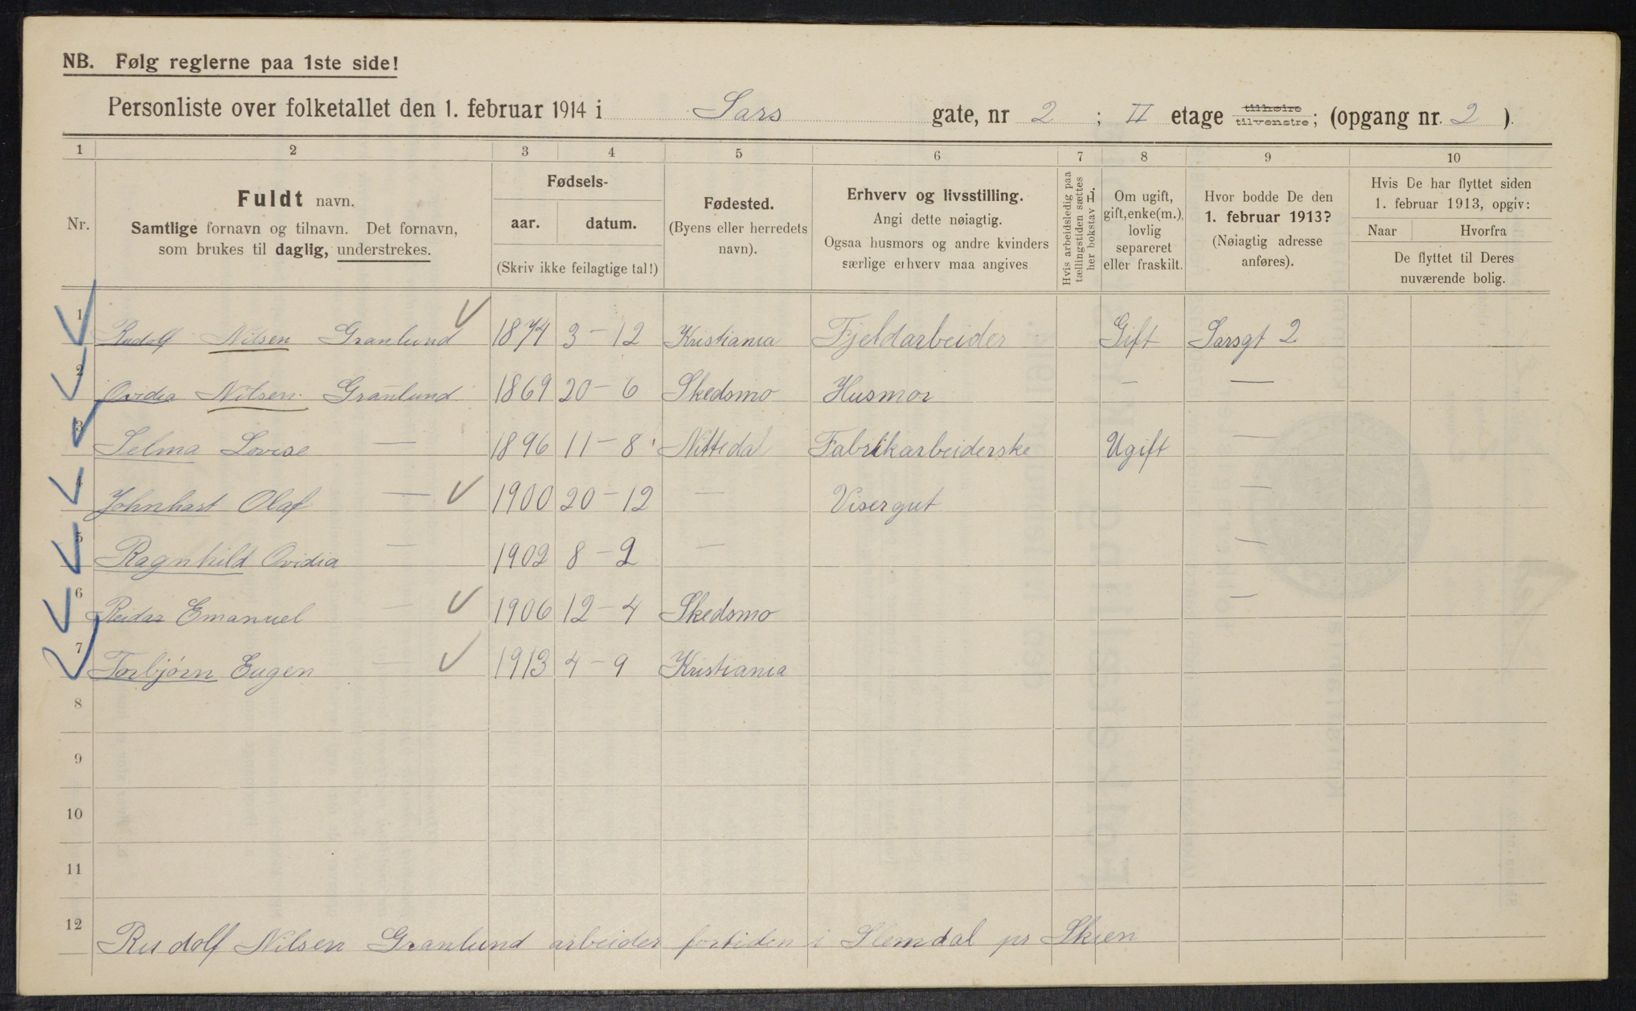 NB. Følg reglerne paa 1ste side!
Personliste over folketallet den 1. februar 1914 i Sars gate, nr 2 ; II etage tilhøire tilvenstre; (opgang nr. 2 ).
1 2 3 4 5 6 7 8 9 10
Nr.
Fuldt navn.
Samtlige fornavn og tilnavn. Det fornavn,
som brukes til daglig, understrekes.
Fødsels-
aar. datum.
(Skriv ikke feilagtige tal!)
Fødested.
(Byens eller herredets
navn).
Erhverv og livsstilling.
Angi dette nøiagtig.
Ogsaa husmors og andre kvinders
særlige erhverv maa angives
Hvis arbeidsledig paa
tællingstiden sættes
her bokstav L.
Om ugift,
gift, enke(m.),
lovlig
separeret
eller fraskilt.
Hvor bodde De den
1. februar 1913?
(Nøiagtig adresse
anføres).
Hvis De har flyttet siden
1. februar 1913, opgiv:
Naar Hvorfra
De flyttet til Deres
nuværende bolig.
1 Rudolf Nilsen Granlund 1874 3-12 Kristiania Fjeldarbeider Gift Sarsgt 2
2 Ovidia Nilsen Granlund 1869 20-6 Skedsmo Husmor — —
3 Selma Lovise — 1896 11-8 Nittedal Fabrikarbeiderske Ugift —
4 Johnhart Olaf — 1900 20-12 — Visergut —
5 Ragnhild Ovidia — 1902 8-2 — —
6 Reidar Emanuel — 1906 12-4 Skedsmo —
7 Torbjørn Eugen — 1913 4-9 Kristiania
8
9
10
11
12
Rudolf Nilsen Granlund arbeider fortiden i Slemdal pr Skien